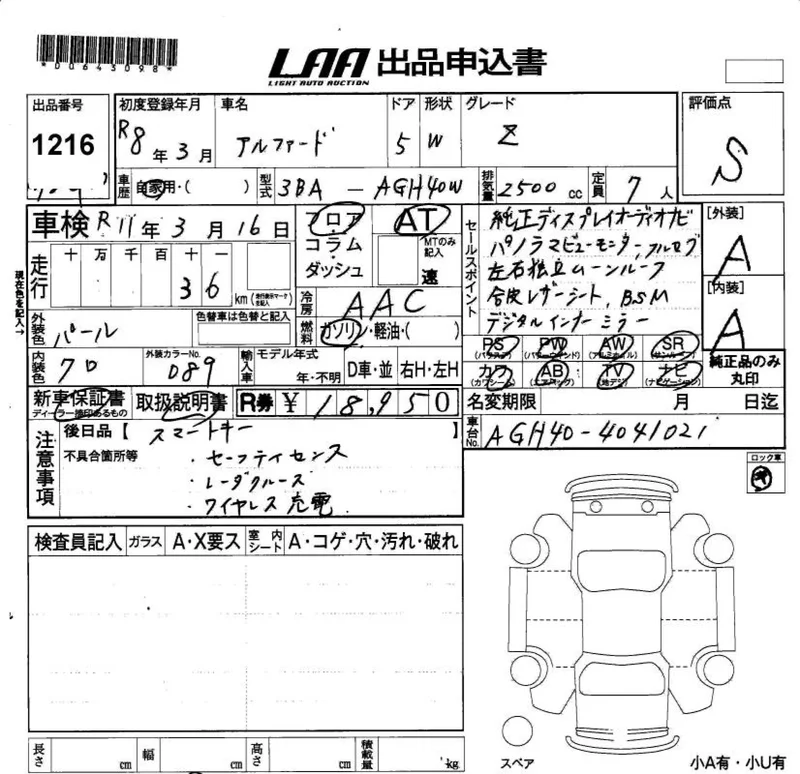 *00643098*
LAA 出品申込書
LIGHT AUTO AUCTION
出品番号 初度登録年月 車名 ドア 形状 グレード 評価点
1216 R8年3月 アルファード 5 W Z S
車歴 自家用・( ) 型式 3BA-AGH40W 排気量 2500cc 定員 7人
車検 R11年3月16日 フロア・コラム・ダッシュ AT MTのみ記入 速
現在色を記入→
走行 十 万 千 百 十 一
36 km (走行表示マークを記入)
冷房 AAC
外装色 パール 色替車は色替と記入 燃料 ガソリン・軽油・( )
内装色 クロ 外装カラーNo. 089 輸入車 モデル年式 年・不明 D車・並 右H・左H
セールスポイント
純正ディスプレイオーディオナビ
パノラマビューモニター,フルセグ
左右独立ムーンルーフ
合皮レザーシート,BSM
デジタルインナーミラー
[外装] A
[内装] A
PS (パワステ) PW (パワーウインド) AW (アルミホイル) SR (サンルーフ)
カワ (カワシート) AB (エアバッグ) TV (地デジ) ナビ (ナビゲーション)
純正品のみ丸印
新車保証書 ディーラー捺印あるもの 取扱説明書 R券 ¥18,950
名変期限 月 日迄
車台No. AGH40-4041021
注意事項
後日品【 スマートキー 】
不具合箇所等 ・セーフティセンス
・レーダクルーズ
・ワイヤレス充電
ロック車
検査員記入 ガラス A・X要ス 室内シート A・コゲ・穴・汚れ・破れ
長さ cm 幅 cm 高さ cm 積載量 kg
スペア 小A有・小U有